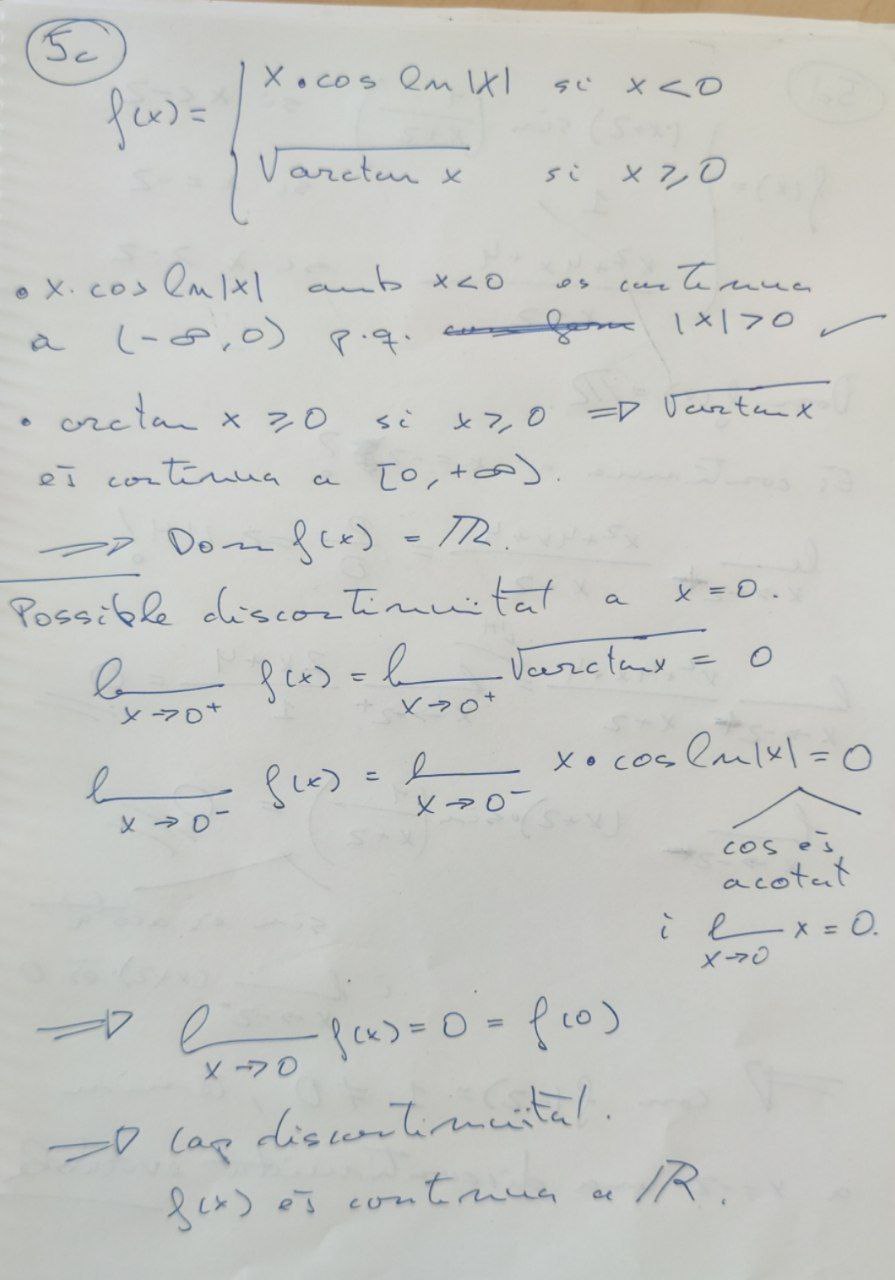 5c
f(x) = { x · cos ln |x| si x < 0
√arctan x si x ≥ 0
• x · cos ln |x| amb x < 0 és contínua
a (-∞, 0) p.q. |x| > 0 ✓
• arctan x ≥ 0 si x ≥ 0 ⇒ √arctan x
és contínua a [0, +∞).
⇒ Dom f(x) = ℝ.
Possible discontinuïtat a x = 0.
l___ x→0⁺ f(x) = l___ x→0⁺ √arctan x = 0
l___ x→0⁻ f(x) = l___ x→0⁻ x · cos ln |x| = 0
cos és
acotat
i l___ x→0 x = 0.
⇒ l___ x→0 f(x) = 0 = f(0)
⇒ Cap discontinuïtat.
f(x) és contínua a ℝ.